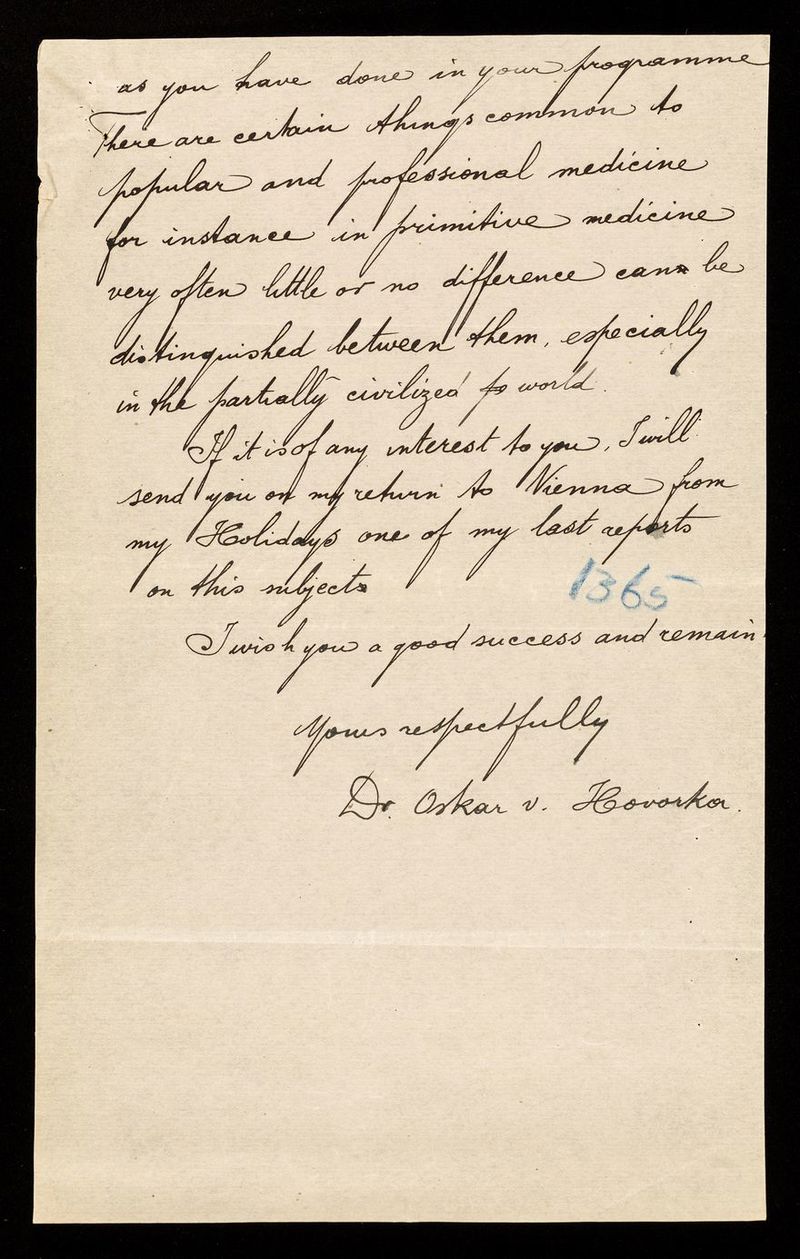 as you have done in your programme
There are certain things common to
popular and professional medicine
for instance in primitive medicine
very often little or no difference can be
distinguished between them, especially
in the partially civilized world.
If it is of any interest to you, I will
send you on my return to Vienna from
my Holidays one of my last reports
on this subject
1365
I wish you a good success and remain
Yours respectfully
Dr. Oskar v. Hovorka.